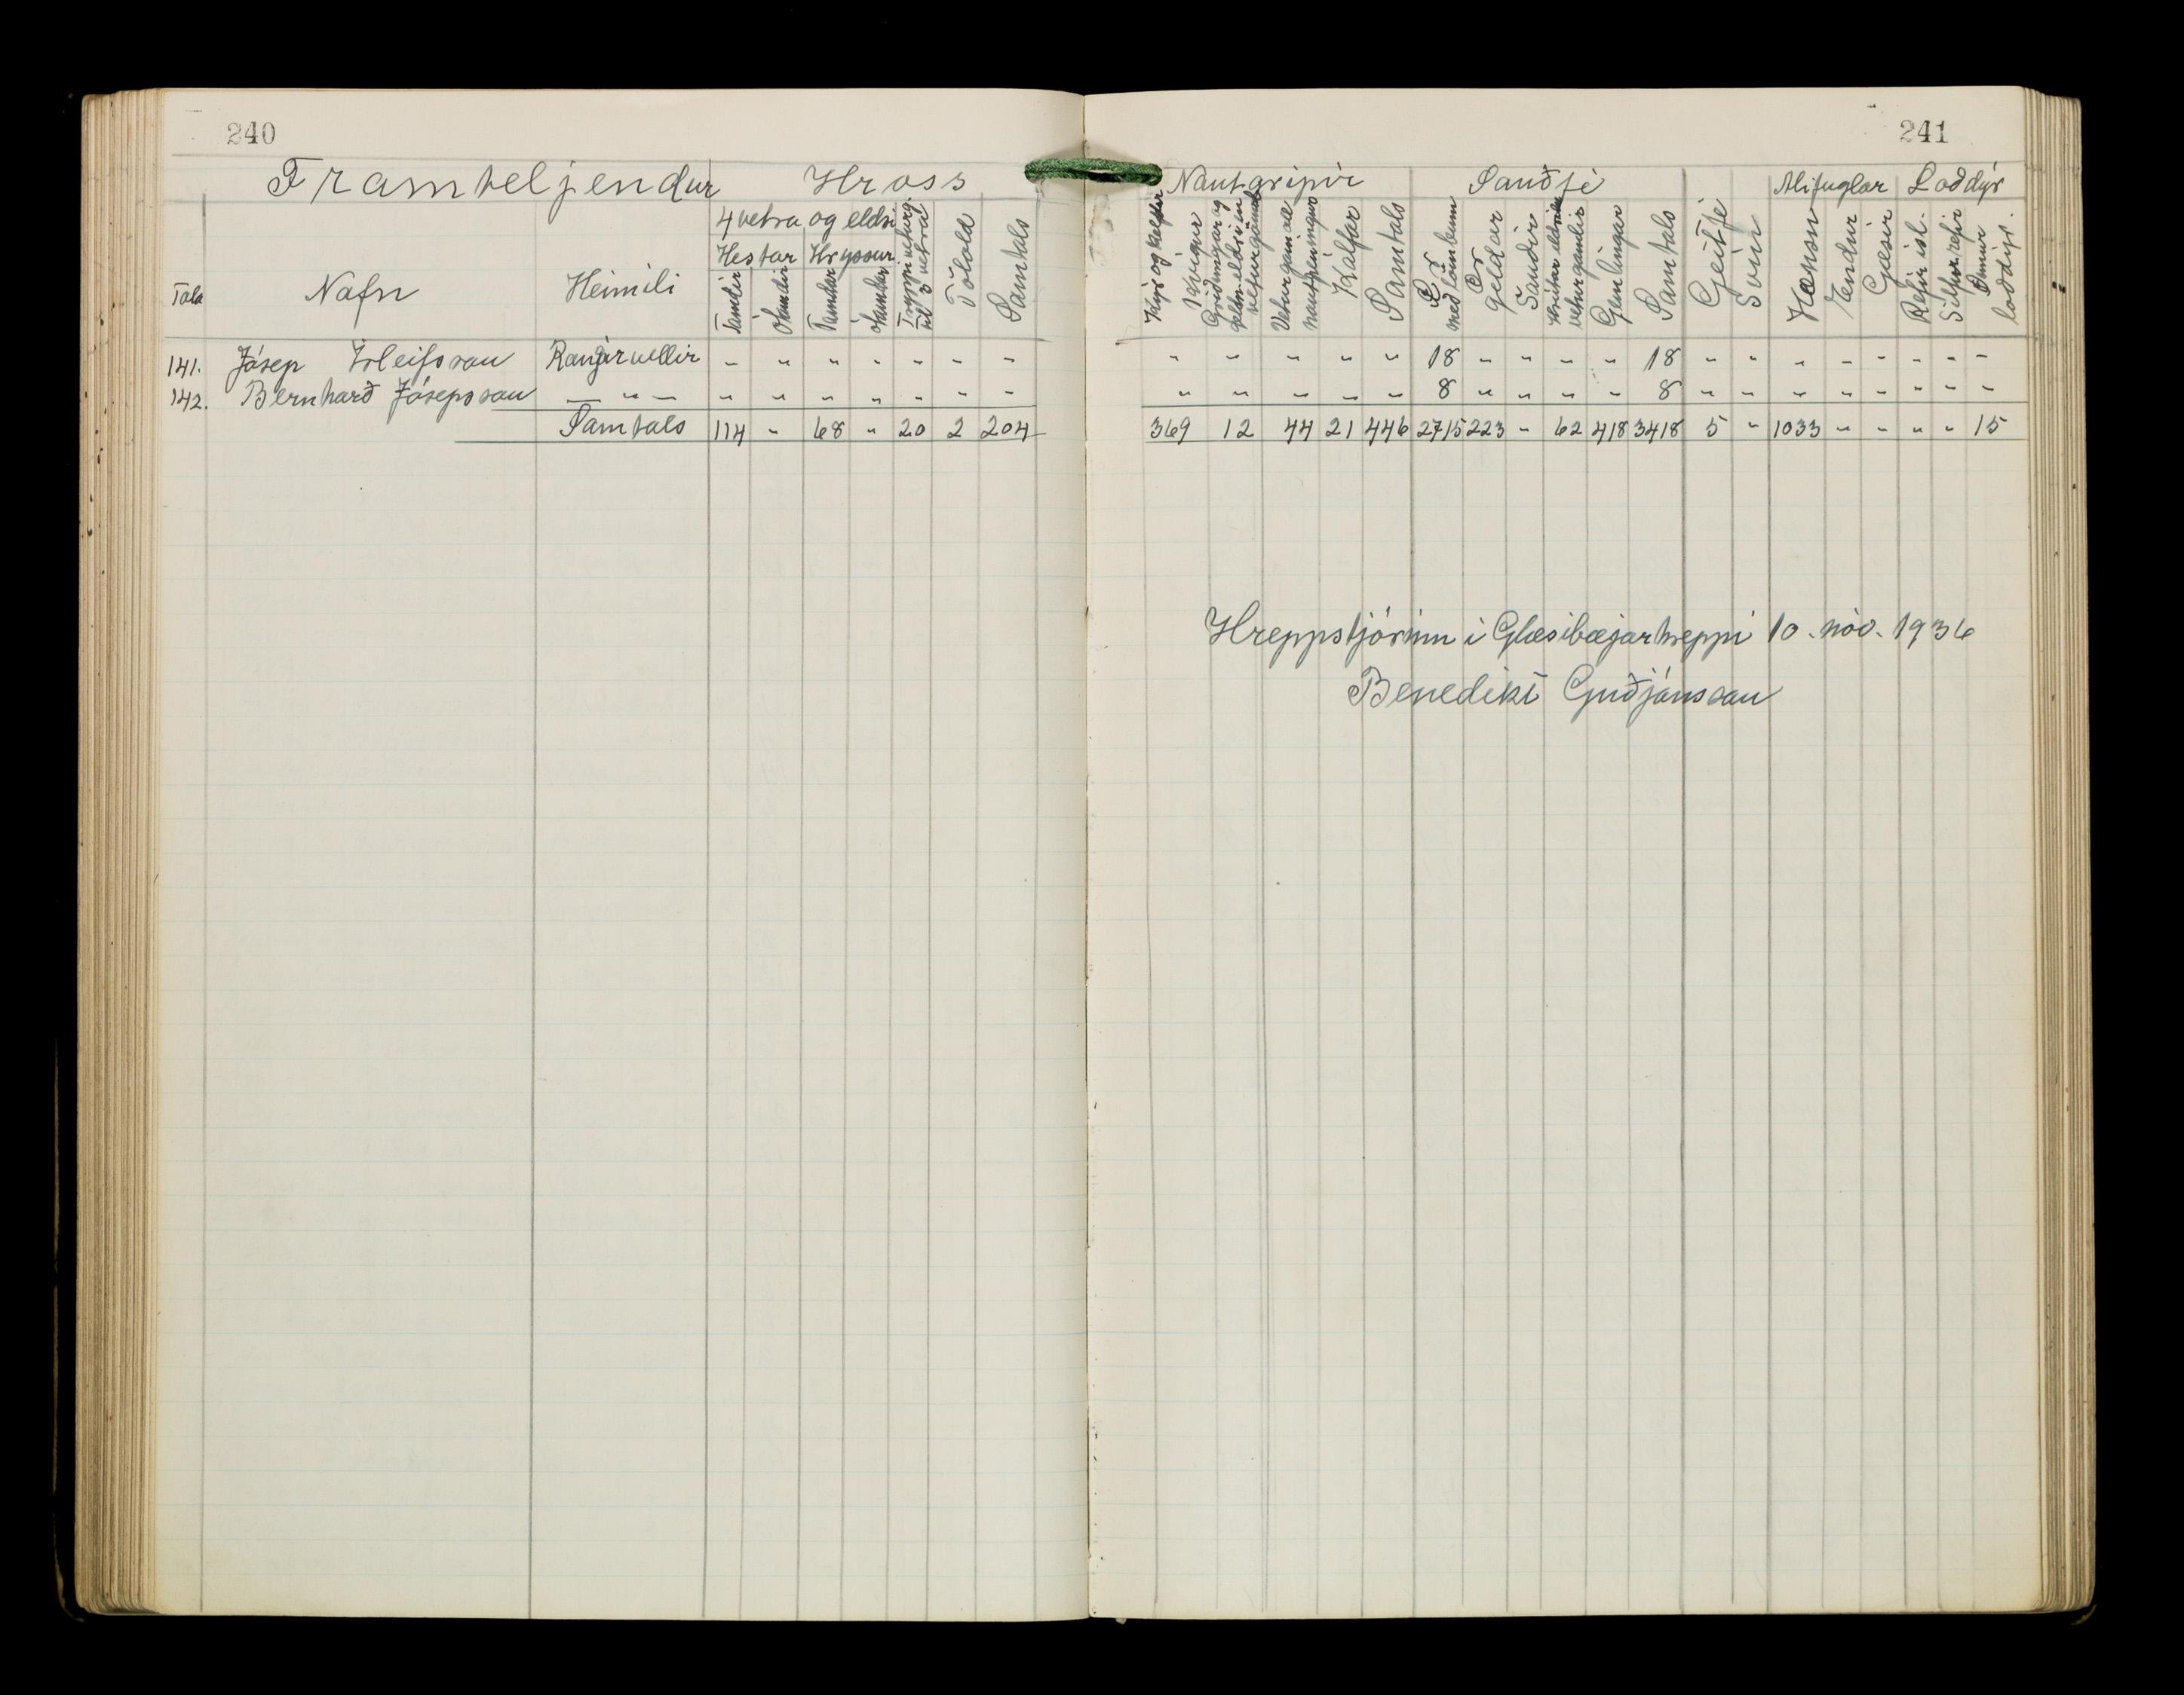 240
Framteljendur Hross
4 vetra og eldri
Hestar Hryssur
Tala Nafn Heimili Tamdir Ótamdir Tamdar Ótamdar Tryppi veturg. til 3 vetra Folöld Samtals
141. Jósep Ísleifsson Rangárvellir - " " " " - -
142. Bernharð Jósepsson — " — " " " " " - -
Samtals 114 " 68 " 20 2 204
241
Nautgripir Sauðfé Alifuglar Loðdýr
Kýr og kelfdar kvígur Griðungar og geldn. eldri en veturgamlir Veturgamall nautpeningur Kálfar Samtals Ær með lömbum Ær geldar Sauðir Hrútar eldri en veturgamlir Gemlingar Samtals Geitfé Svín Hænsn Endur Gæsir Refir ísl. Silfurrefir Önnur loðdýr
" " " " " 18 " " " " 18 " " " " " " " -
" " " " " 8 " " " " 8 " " " " " " " -
369 12 44 21 446 2715 223 - 62 418 3418 5 " 1033 " " " " 15
Hreppstjórinn í Glæsibæjarhreppi 10. nóv. 1936
Benedikt Guðjónsson